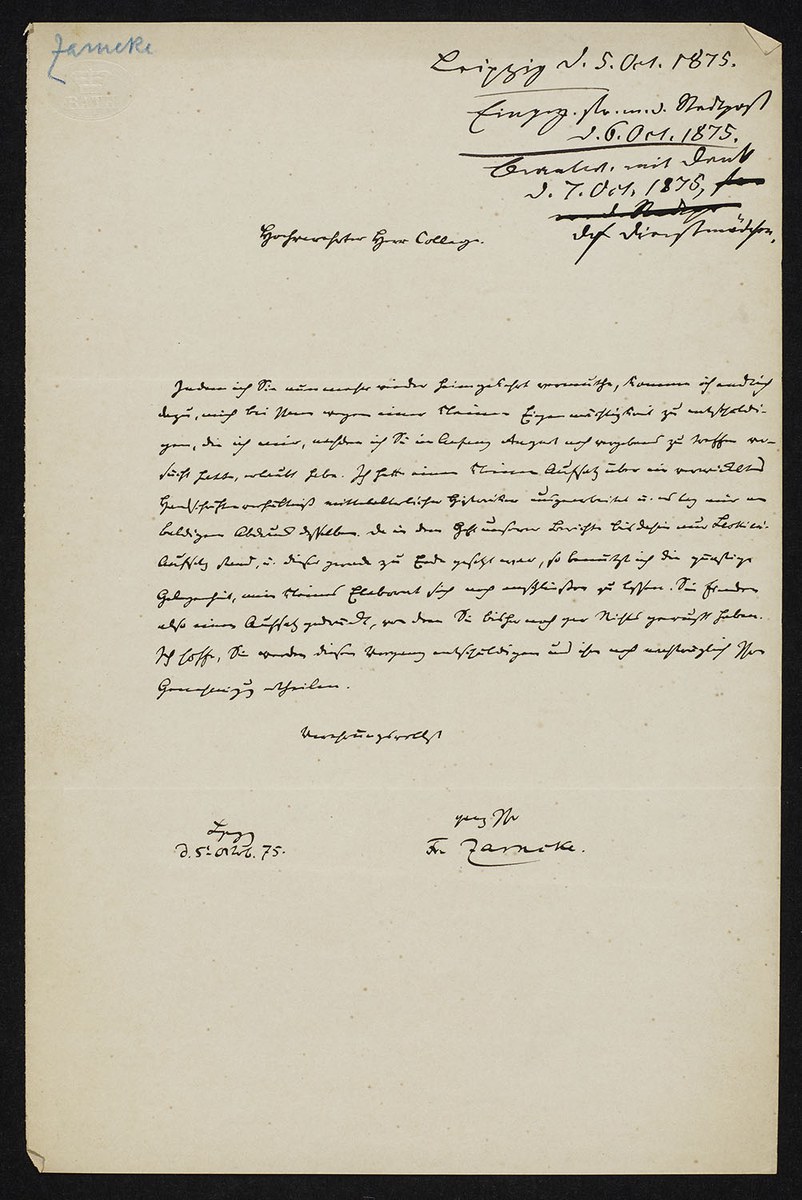 Zarncke
Leipzig d. 5. Oct. 1875.
Eingeg. fr. m. d. Stadtpost
d. 6. Oct. 1875.
Beantw. mit Dank
d. 7. Oct. 1875,
d. Dienstmädchen.
Hochverehrter Herr College.
Indem ich Sie nunmehr wieder heimgekehrt vermuthe, komme ich endlich
dazu, mich bei Ihnen wegen einer kleinen Eigenmächtigkeit zu entschuldi-
gen, die ich mir, nachdem ich Sie im Anfang August noch vergebens zu treffen ver-
sucht hatte, erlaubt habe. Ich hatte einen kleinen Aufsatz über ein verwickeltes
Handschriftenverhältniß mittelalterlicher Historiker ausgearbeitet u. es lag mir an
baldigem Abdruck desselben. Da in dem Heft unserer Berichte bis dahin nur
Aufsatz stand, u. dieser gerade zu Ende gesetzt war, so benutzte ich die günstige
Gelegenheit, mein kleines Elaborat sich noch anschließen zu lassen. Sie finden
also einen Aufsatz gedruckt, von dem Sie bisher noch gar Nichts gewußt haben.
Ich hoffe, Sie werden diesen Vorgang entschuldigen und ihm noch nachträglich Ihre
Genehmigung ertheilen.
Verehrungsvollst
ganz Ihr
Fr. Zarncke.
Lpzg
d. 5t Octob. 75.